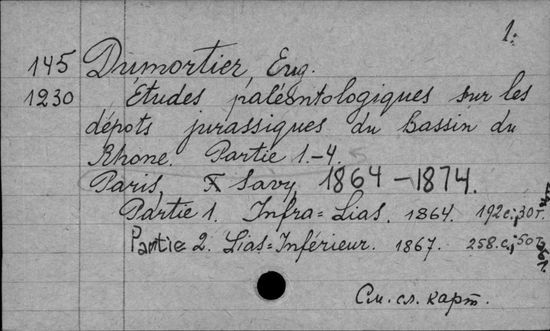 1.
145 Dumortier, Eug.
1230 Études paléontologiques sur les
dépots jurassiques du bassin du
Rhone. Partie 1.-4.
Paris, F Savy, 1864-1874.
Partie 1. Infra=Lias. 1864. 192 c.; 30 т.
Partie 2. Lias=Inférieur. 1867. 258 c.; 50 т.
См. сл. карт.